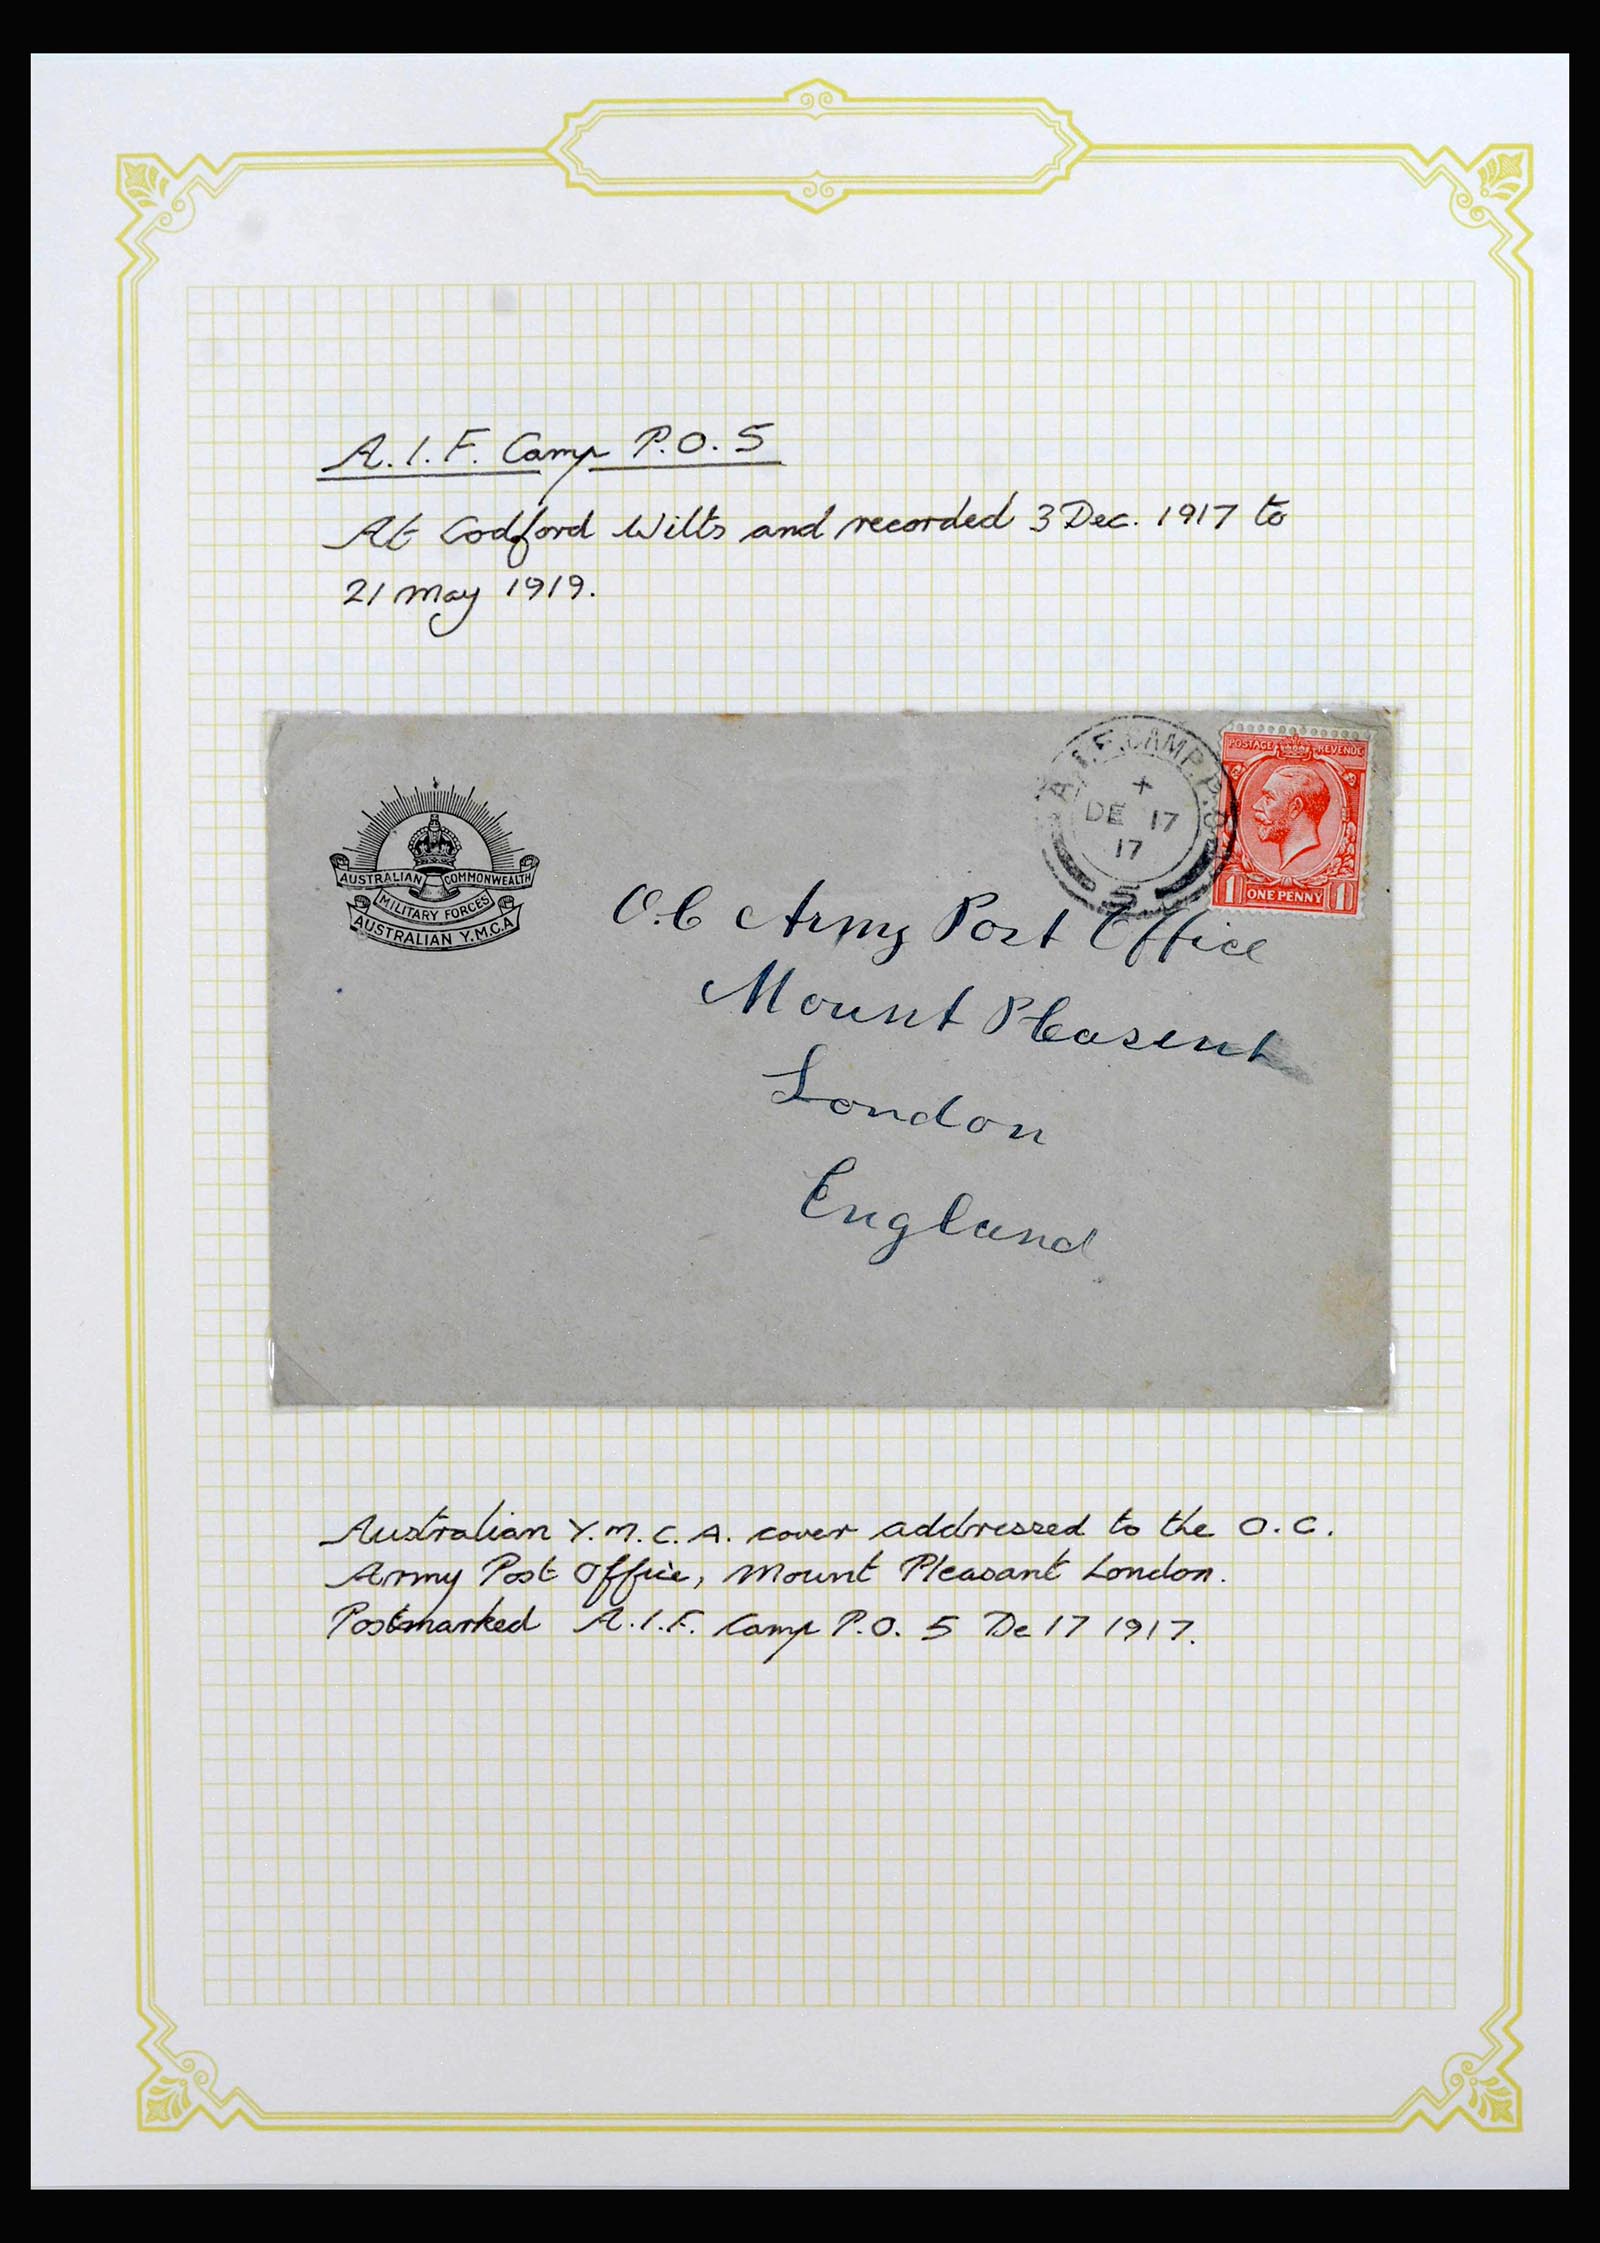 A.I.F. Camp P.O. 5
At Codford Wilts and recorded 3 Dec. 1917 to
21 May 1919.
AUSTRALIAN COMMONWEALTH
MILITARY FORCES
AUSTRALIAN Y.M.C.A
A.I.F. CAMP. P.O.
+
DE 17
17
5
POSTAGE REVENUE
1 ONE PENNY 1
O.C Army Post Office
Mount Pleasent
London
England
Australian Y.M.C.A. cover addressed to the O.C.
Army Post Office, Mount Pleasant London.
Postmarked A.I.F. Camp P.O. 5 De 17 1917.